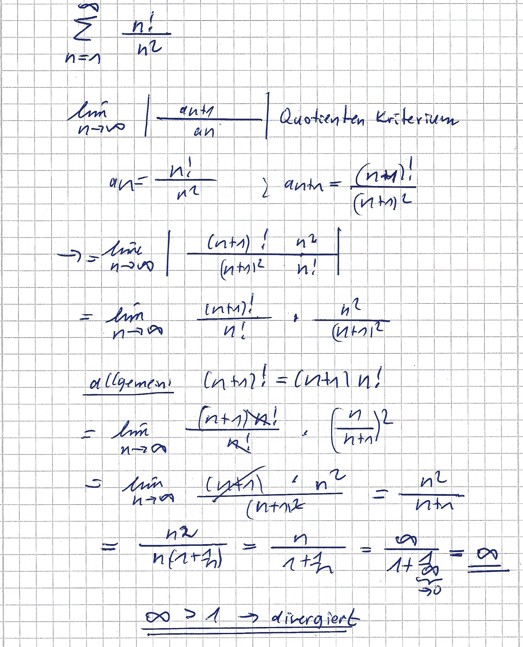 ∞
∑ n!/n²
n=1
lim n→∞ | an+1 / an | Quotienten Kriterium
an = n!/n² ; an+1 = (n+1)!/(n+1)²
→ = lim n→∞ | (n+1)! n² / (n+1)² n! |
= lim n→∞ (n+1)!/n! · n²/(n+1)²
allgemein (n+1)! = (n+1) n!
= lim n→∞ (n+1)n!/n! · (n/(n+1))²
= lim n→∞ (n+1) · n² / (n+1)² = n²/(n+1)
= n²/(n(1+1/n)) = n/(1+1/n) = ∞/(1+1/∞) = ∞
→0
∞ > 1 → divergiert